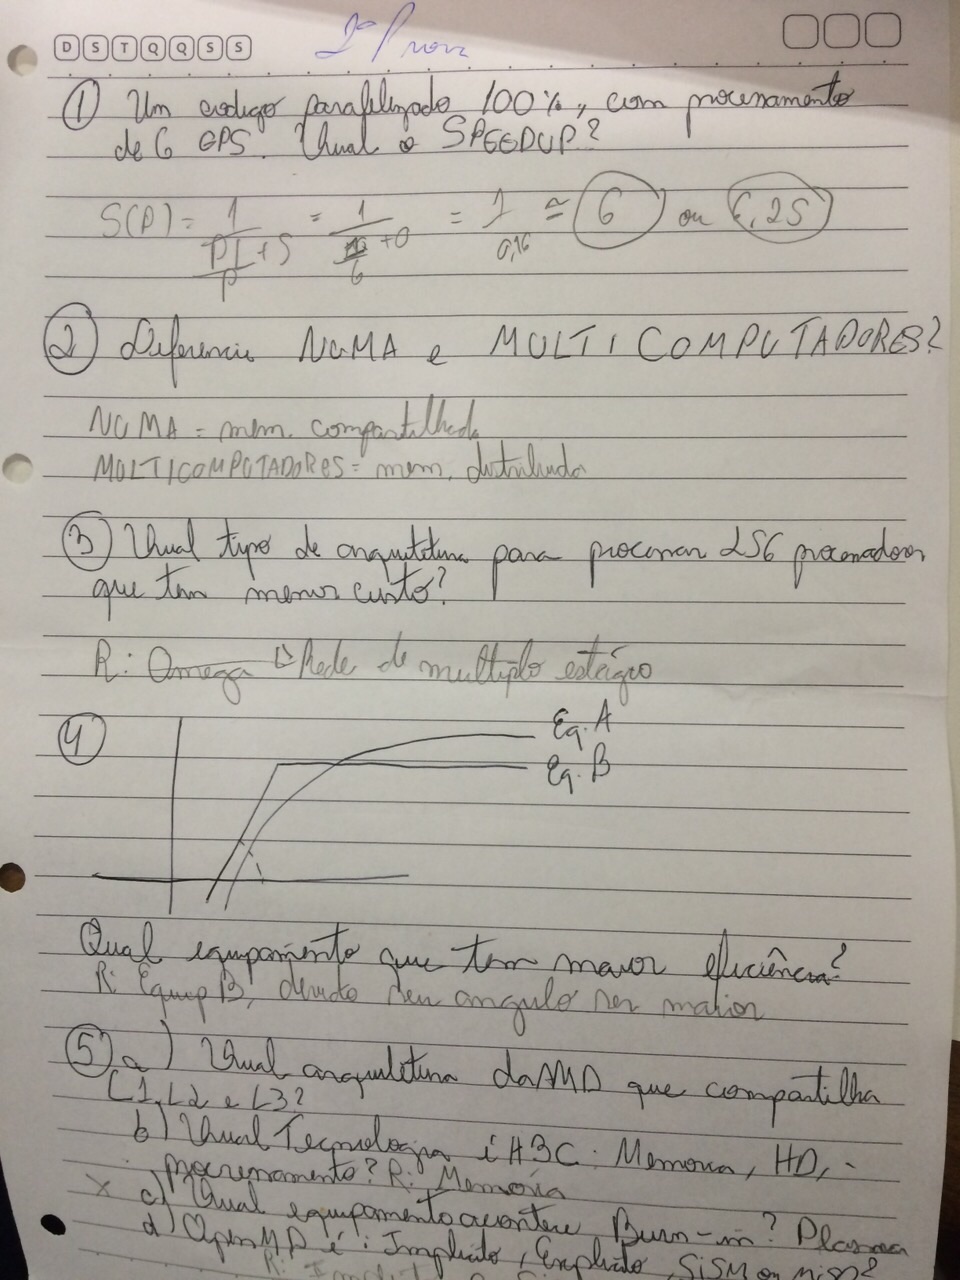 D S T Q Q S S
2ª Prova
① Um codigo paralelizado 100%, com processamento
de 6 GPS. Qual o SPEEDUP?
S(P) = 1 / (PI/P + S) = 1 / (/6 + 0) = 1 / 0,16 ≅ 6 ou 6,25
② Diferencie NUMA e MULTICOMPUTADORES?
NUMA = mem. compartilhada
MULTICOMPUTADORES = mem. distribuida
③ Qual tipo de arquitetura para processar 256 processadores
que tem menor custo?
R: Omega → Rede de multiplo estágio
④
Eq. A
Eq. B
Qual equipamento que tem maior eficiência?
R: Equip B, devido seu angulo ser maior
⑤ a) Qual arquitetura da AMD que compartilha
L1, L2 e L3?
b) Qual Tecnologia é H3C: Memoria, HD,
processamento? R: Memória
x c) Qual equipamento acontece Burn-in? Plasma
d) OpenMP é: Implicito, Explicito, SISM ou MISD?